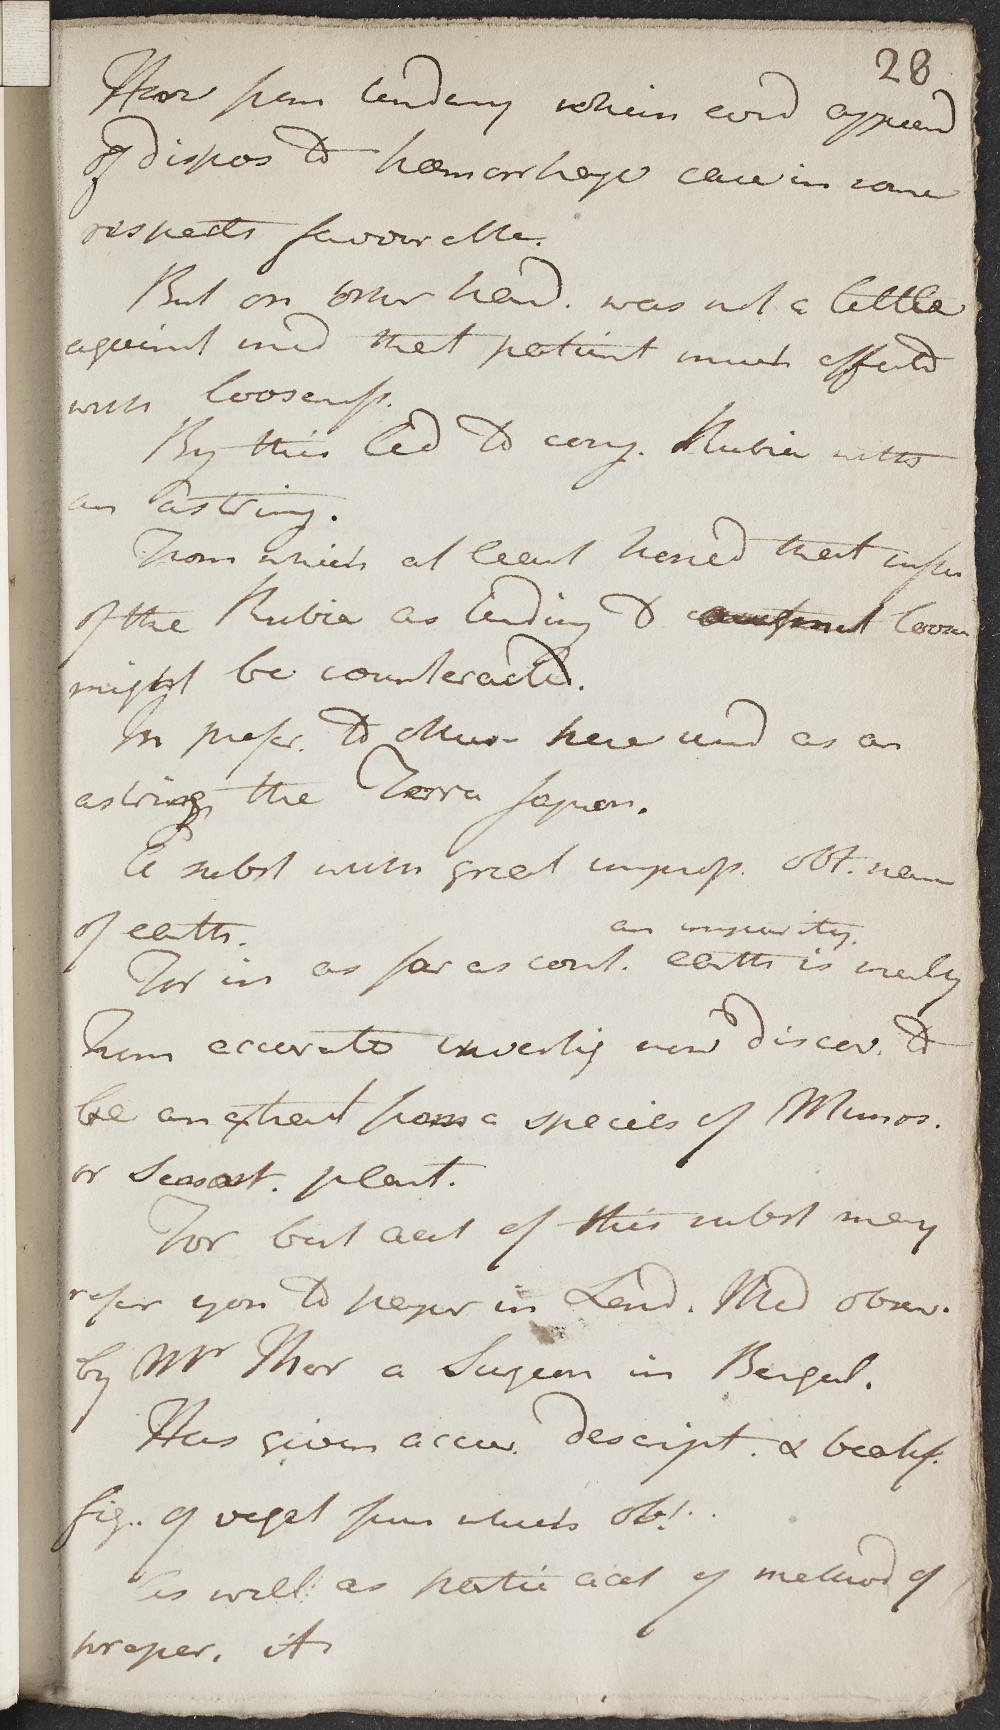 28
Now from tendency which evid appeared
of dispos to hæmorrhage case in some
respects favourable.
But on other hand. was not a little
against med that patient much affected
with looseness.
By this led to conj. Rubia with
an astring.
From which at least hoped that infl
of the Rubia as tending to augment loosn
might be counteracted.
In prefer. to others here used as an
astring the Terra Japon.
A subst with great improp. obt. name
of earth.
an impurity.
For in as far as cont. earth is merely
From accurate investig now discov. to
be an extract from a species of Mimos.
or Sensit. plant.
For best acct of this subst may
refer you to paper in Lond. Med observ.
by Mr Ker a Surgeon in Bengal.
Has given accu. descript. & beatif.
fig. of veget from which obt..
As well as partic acct of method of
prepar. it